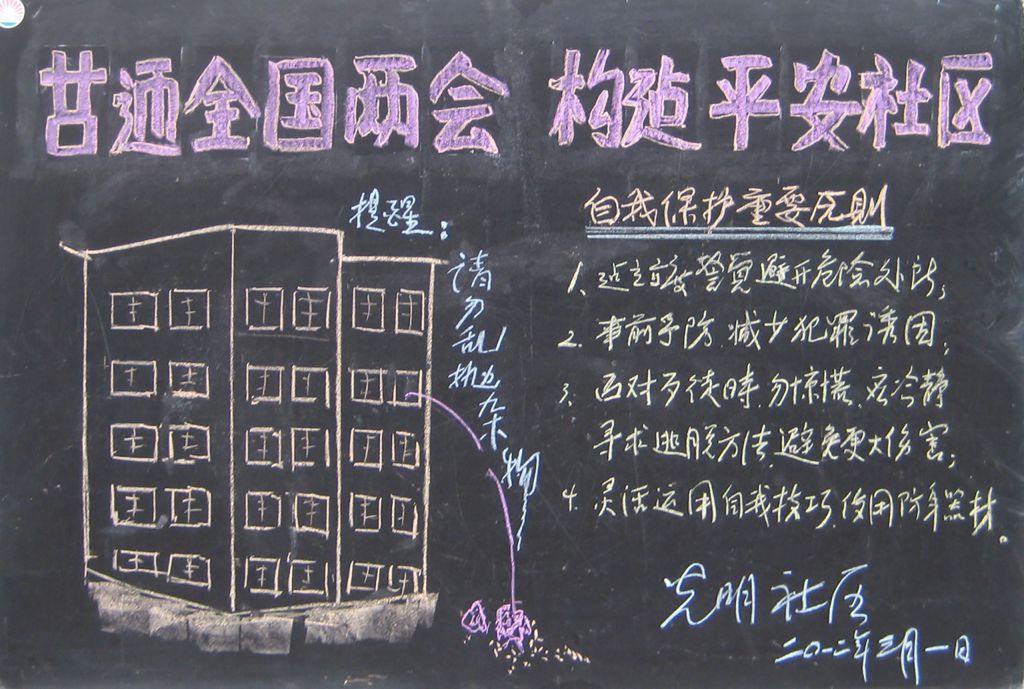 迎全国两会 构建平安社区
提醒：
请勿乱抛杂物
自我保护重要原则
1. 警觉避开危险处所；
2. 事前予防，减少犯罪诱因；
3. 面对歹徒时，勿惊慌，应冷静
寻求逃脱方法，避免更大伤害；
4. 灵活运用自我技巧，使用防身器材。
光明社区
二0一二年三月一日